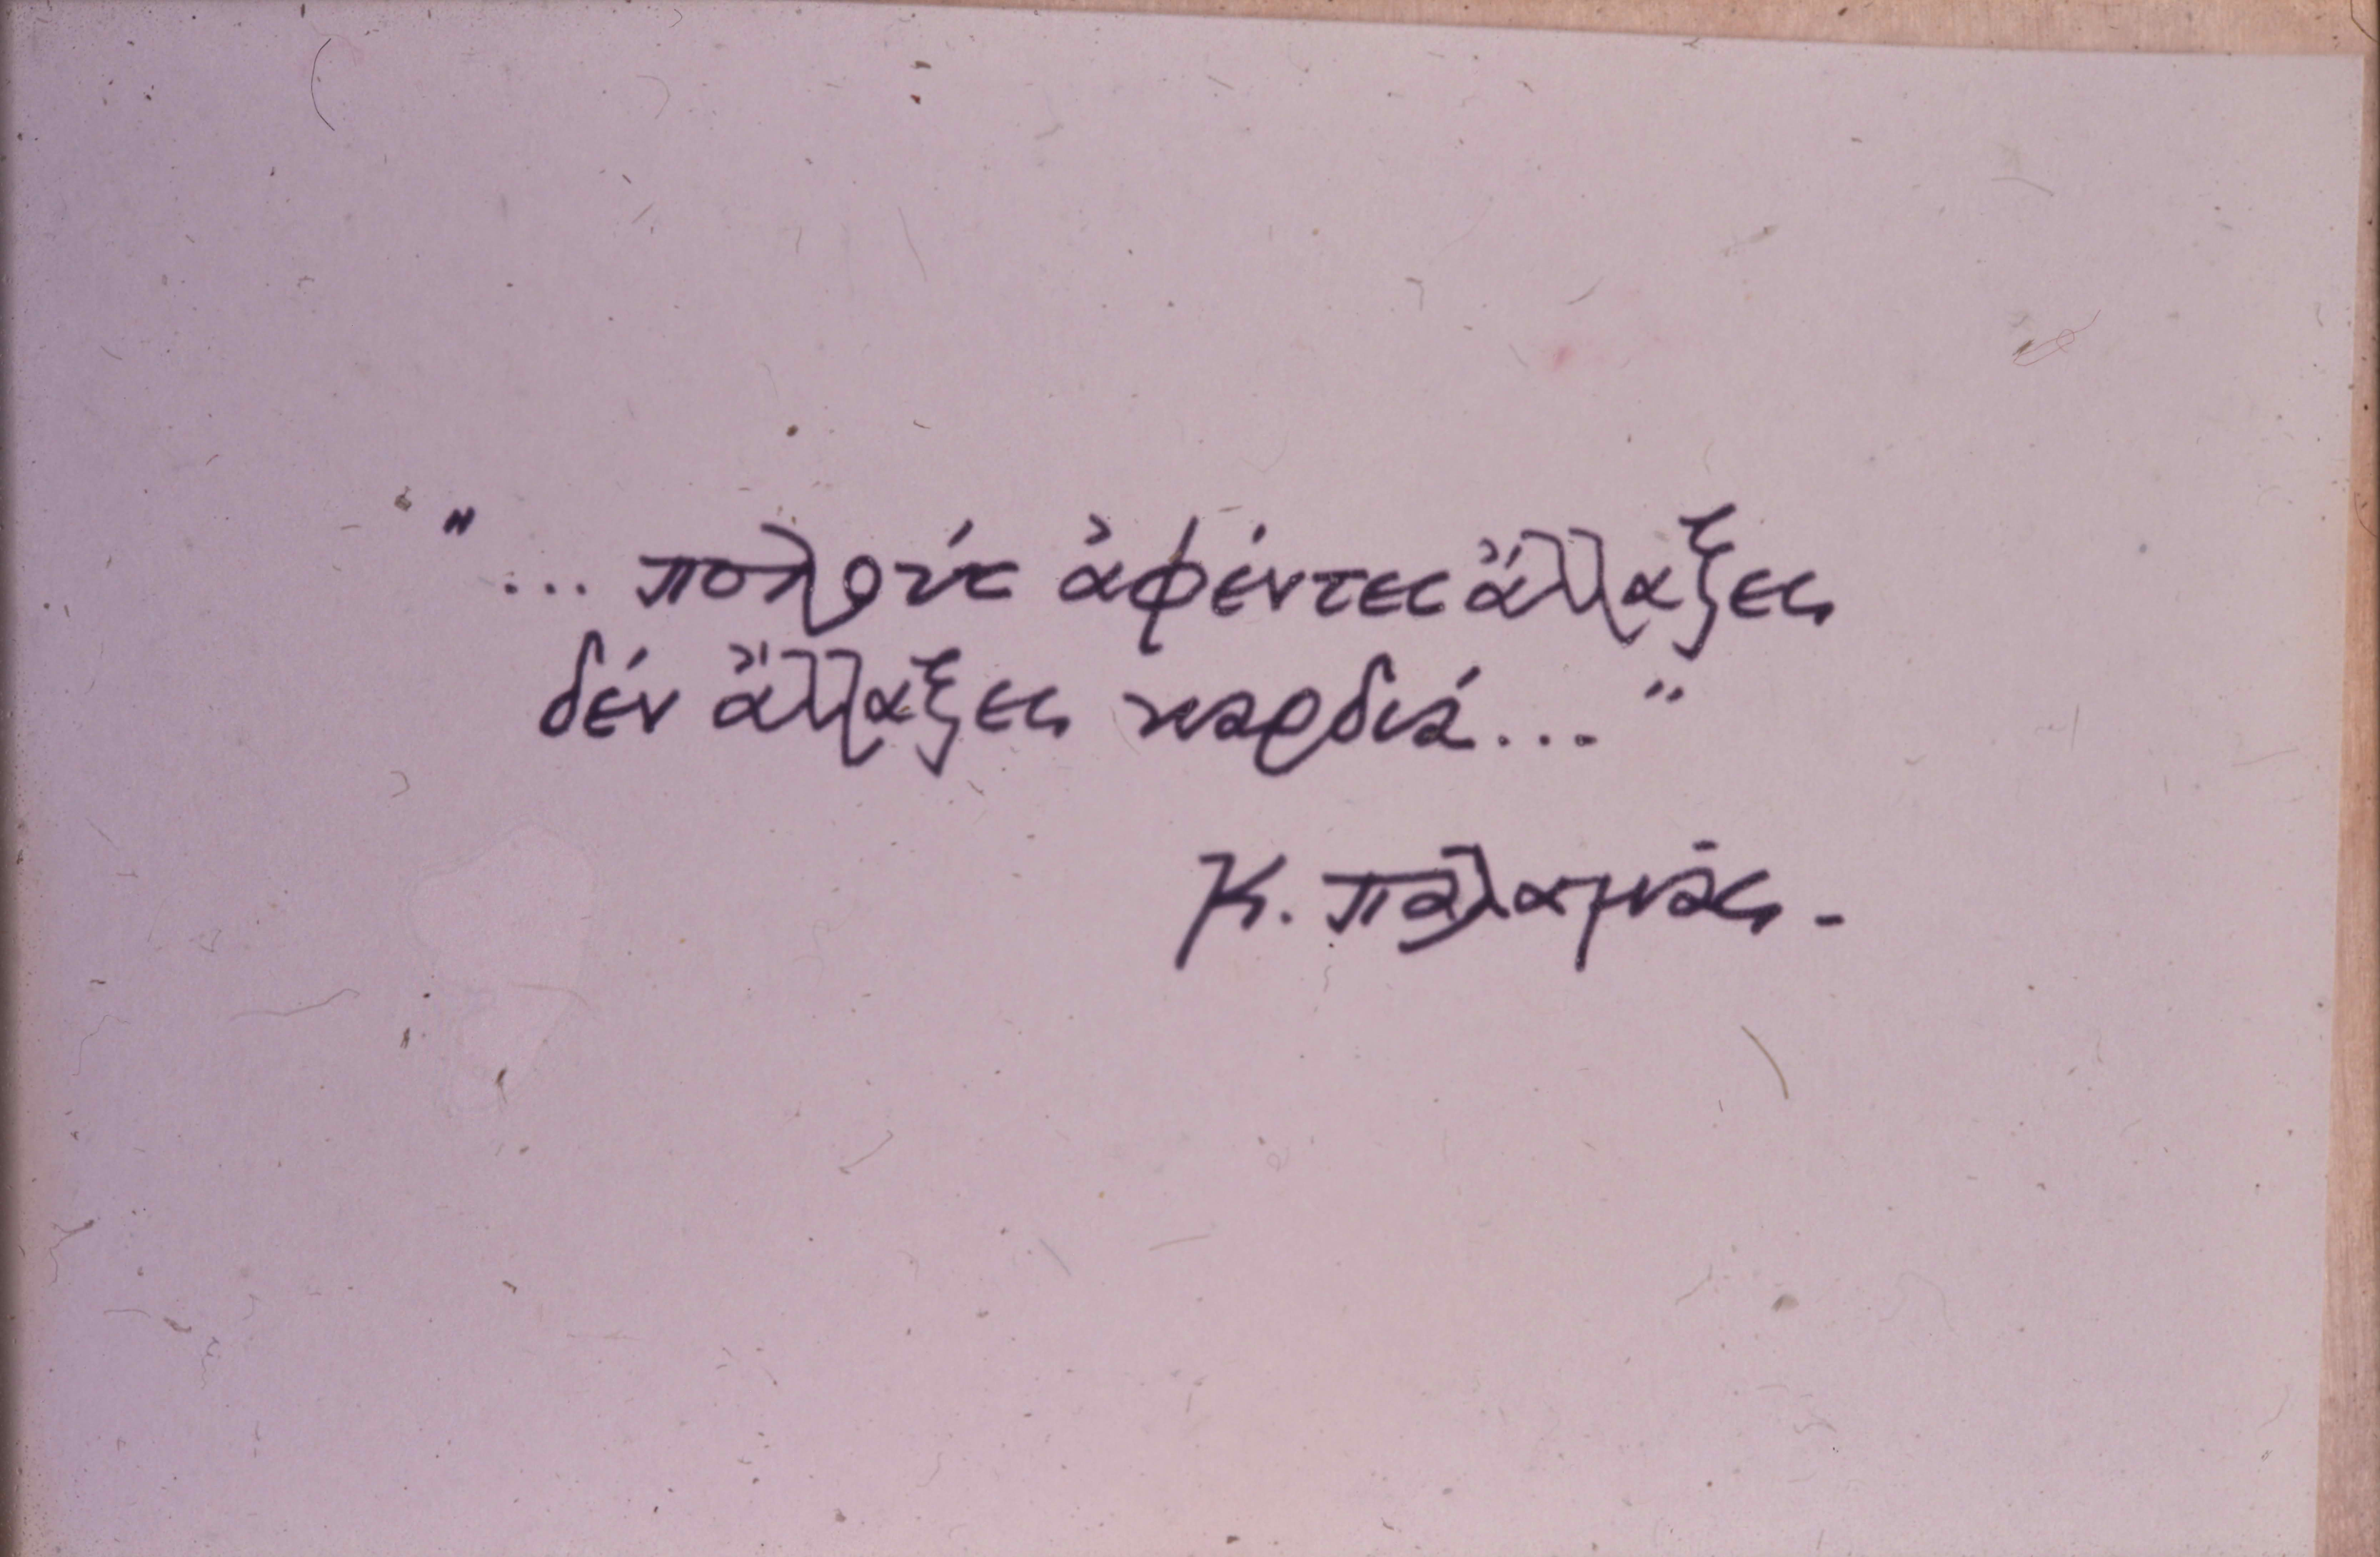 "... πολλούς ἀφέντες ἄλλαξες
δέν ἄλλαξες καρδιά..."
Κ. Παλαμᾶς -